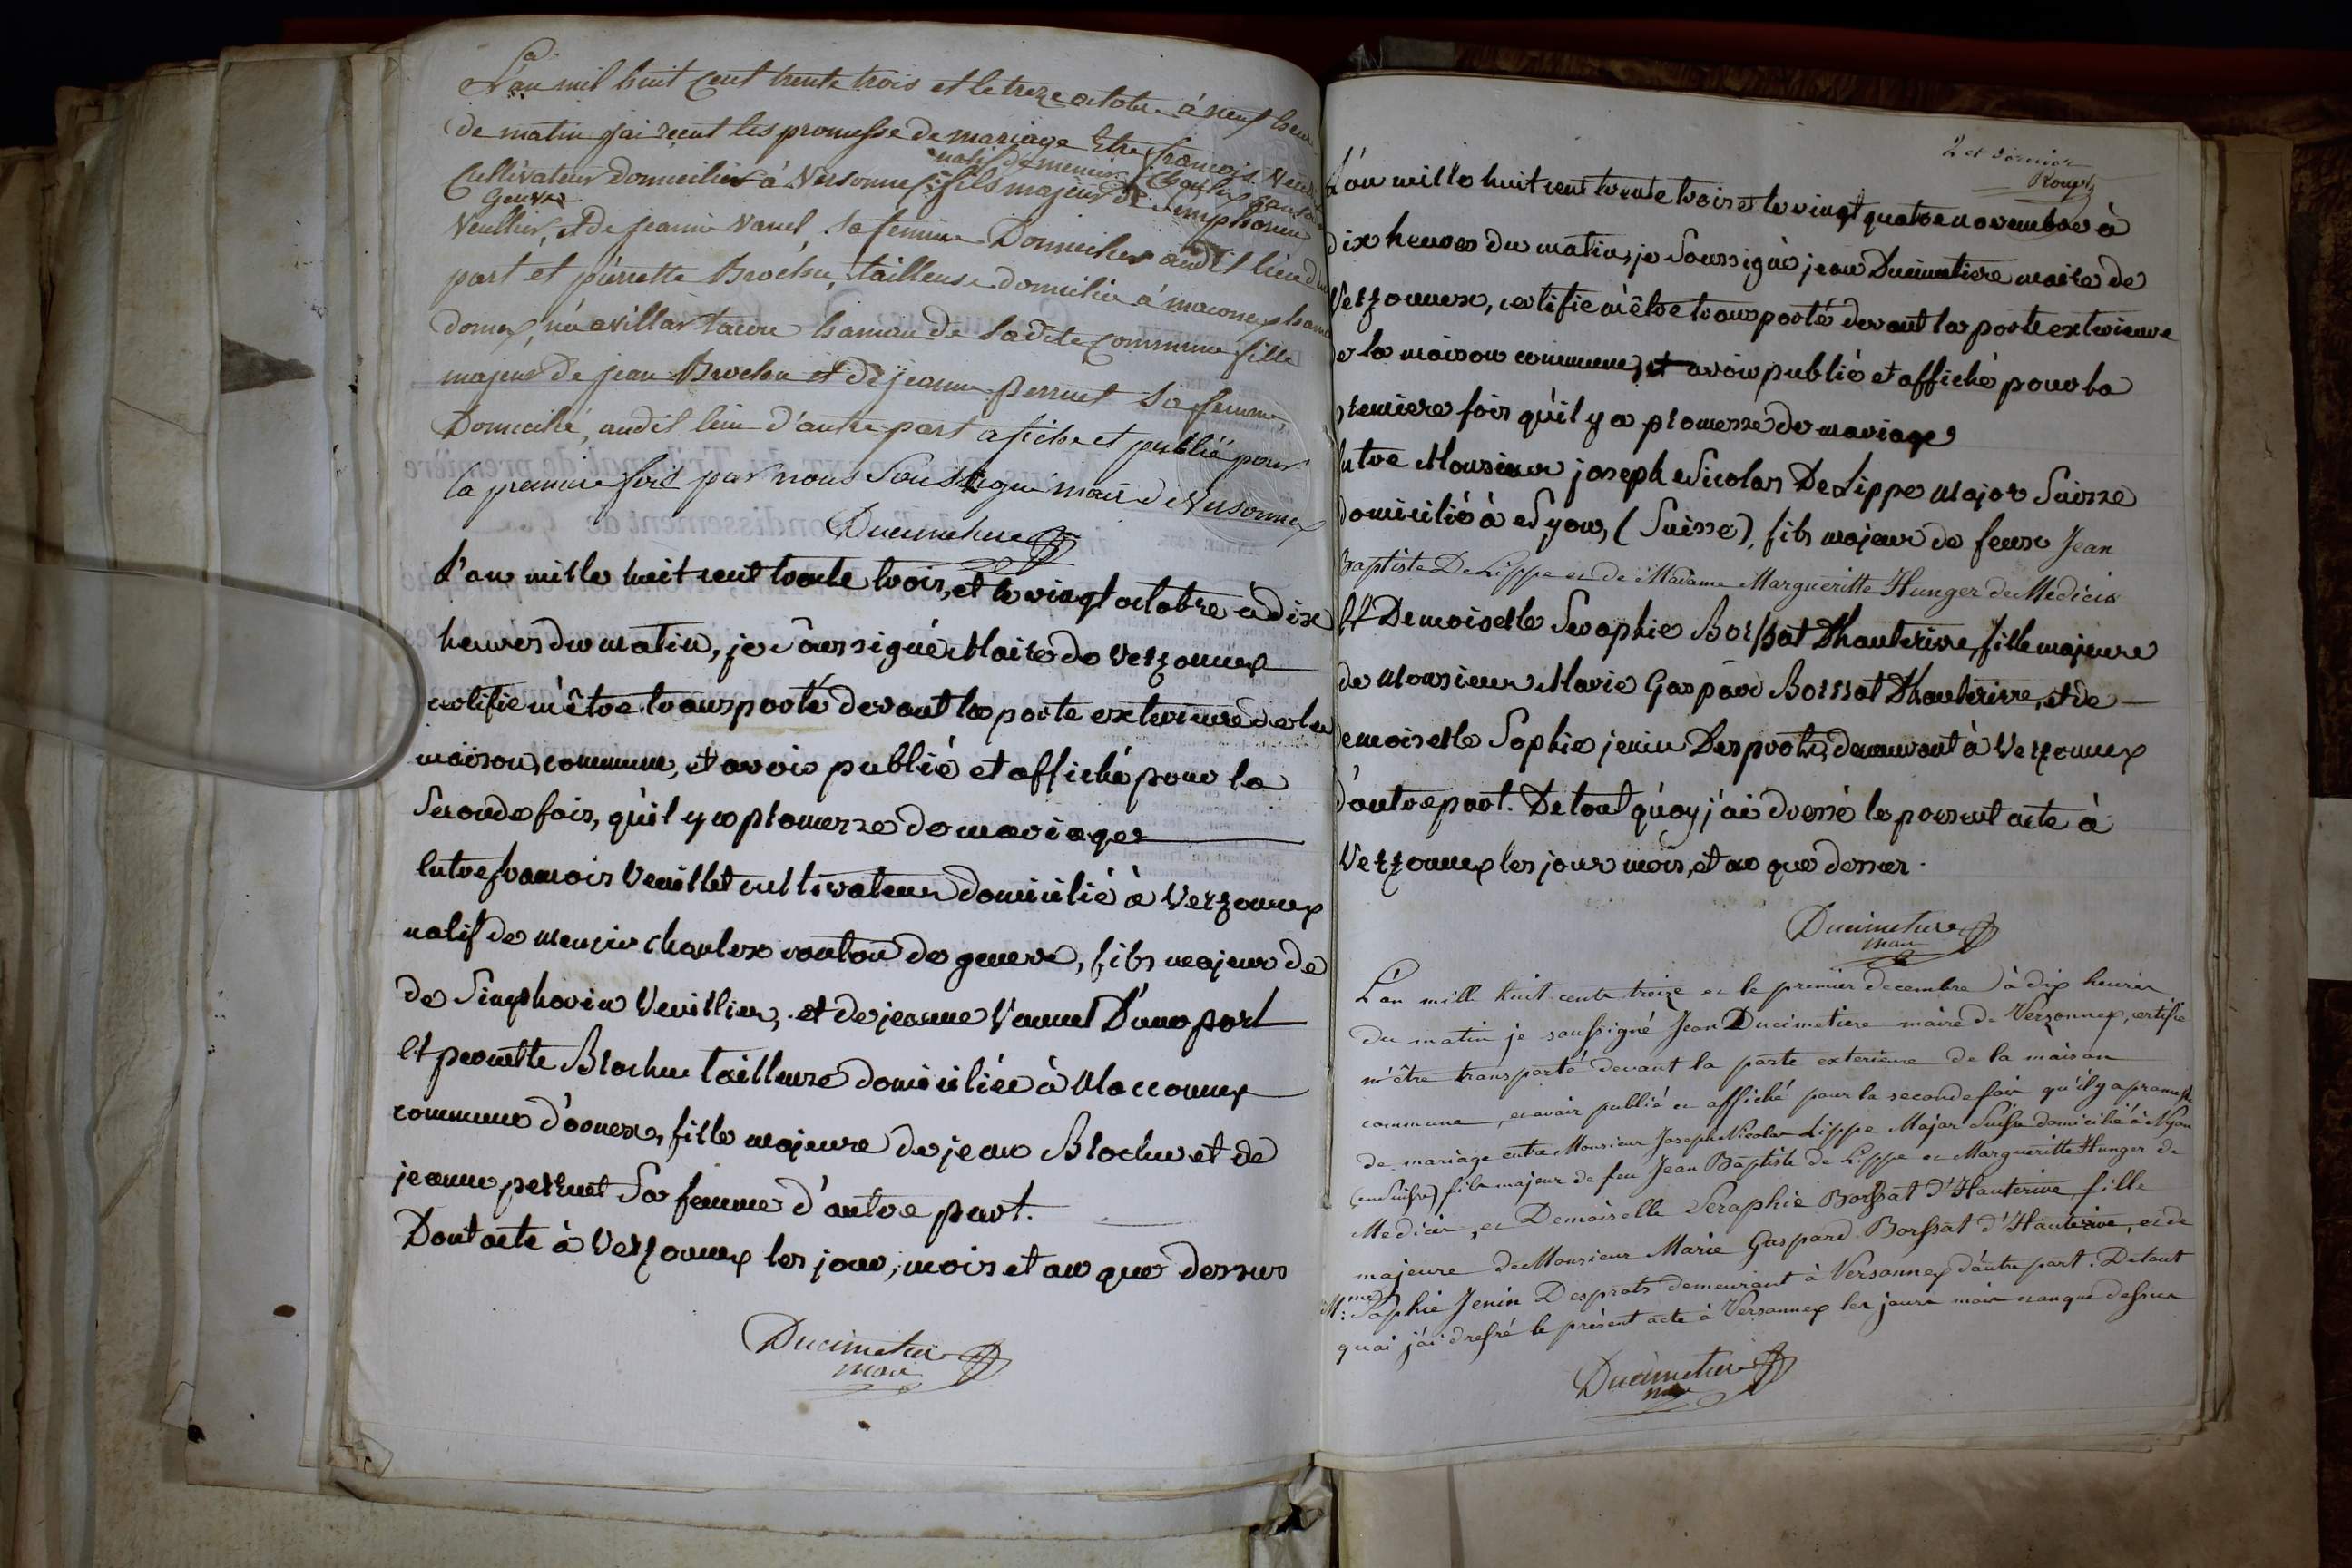 L'an mil huit cent trente trois et le treze octobre à neuf heure
de matin jai recut les promesse de mariage Etre francois
natif de menier Charles canton
Cultivateur domicilier à Versonnex fils majeur de Simphorien
Geneve
Veullier, et de jeanne Vanel, sa femme Domicilier audit lieu d'u
part et pierrette Brochu, tailleuse domicilie à maconnex hama
dornex, né a villar tacon hamau de ladite commune fille
majeur de jean Brochu et de jeanne perruet sa femme
Domicilié, audit lieu d'autre part afiche et publié pour
la premiere fois par nous Sousigné maire de Versonnex
Ducimetiere
L'an mille huit cent trente trois, et le vingt octobre à dix
heures du matin, je soussigné Maire de Verzonnex
certifie m'être transporté devant la porte exterieure de la
maison commune, et avoir publié et affiché pour la
Seconde fois, qu'il y a promesse de mariage
Entre francois Veuillet cultivateur domicilié à Verzonnex
natif de menier charlex canton de geneve, fils majeur de
de Simphorien Veuillier, et de jeanne Vannel D'une part
Et perrette Brochu tailleuse domiciliée à Macconnex
commune d'ornex, fille majeure de jean Brochu et de
jeanne perruet Sa femme d'autre part.
Dont acte à Verzonnex les jour, mois et an que dessus
Ducimetiere
maire
2 et dernier
L'an mille huit cent trente trois et le vingt quatre novembre à
dix heures du matin, je Soussigné jean Ducimetiere maire de
Verzonnex, certifie m'être transporté devant la porte exterieure
de la maison commune, et avoir publié et affiché pour la
premiere fois qu'il y a promesse de mariage
Entre Monsieur joseph Nicolas De Lippe Major Suisse
domicilié à Nyon, (Suisse), fils majeur de feux Jean
Baptiste De Lippe et de Madame Margueritte Hunger de Medicis
Et Demoiselle Seraphie Borssat Dhauterive, fille majeure
de Monsieur Marie Gaspard Borssat Dhauterive, et de
demoiselle Sophie jenin Desprots, demeurant à Verzonnex
d'autre part. De tout quoy j'ai dressé le present acte à
Verzonnex les jour mois, et an que dessus.
Ducimetiere
maire
L'an mille huit cent treize et le premier decembre à dix heures
du matin je soussigné Jean Ducimetiere maire de Verzonnex, certifie
m'être transporté devant la porte exterieure de la maison
commune, et avoir publié et affiché pour la seconde fois qu'il y a promesse
de mariage entre Monsieur Joseph Nicolas Lippe Major Suisse domicilié à Nyon
(en Suisse) fils majeur de feu Jean Baptiste de Lippe et Margueritte Hunger de
Medicis, et Demoiselle Seraphie Borssat d'Hauterive fille
majeure de Monsieur Marie Gaspard Borssat d'Hauterive, et de
Mme: Sophie Jenin Desprots demeurant à Versonnex d'autre part. De tout
quoi j'ai dressé le présent acte à Versonnex les jours mois et an que dessus
Ducimetiere
maire